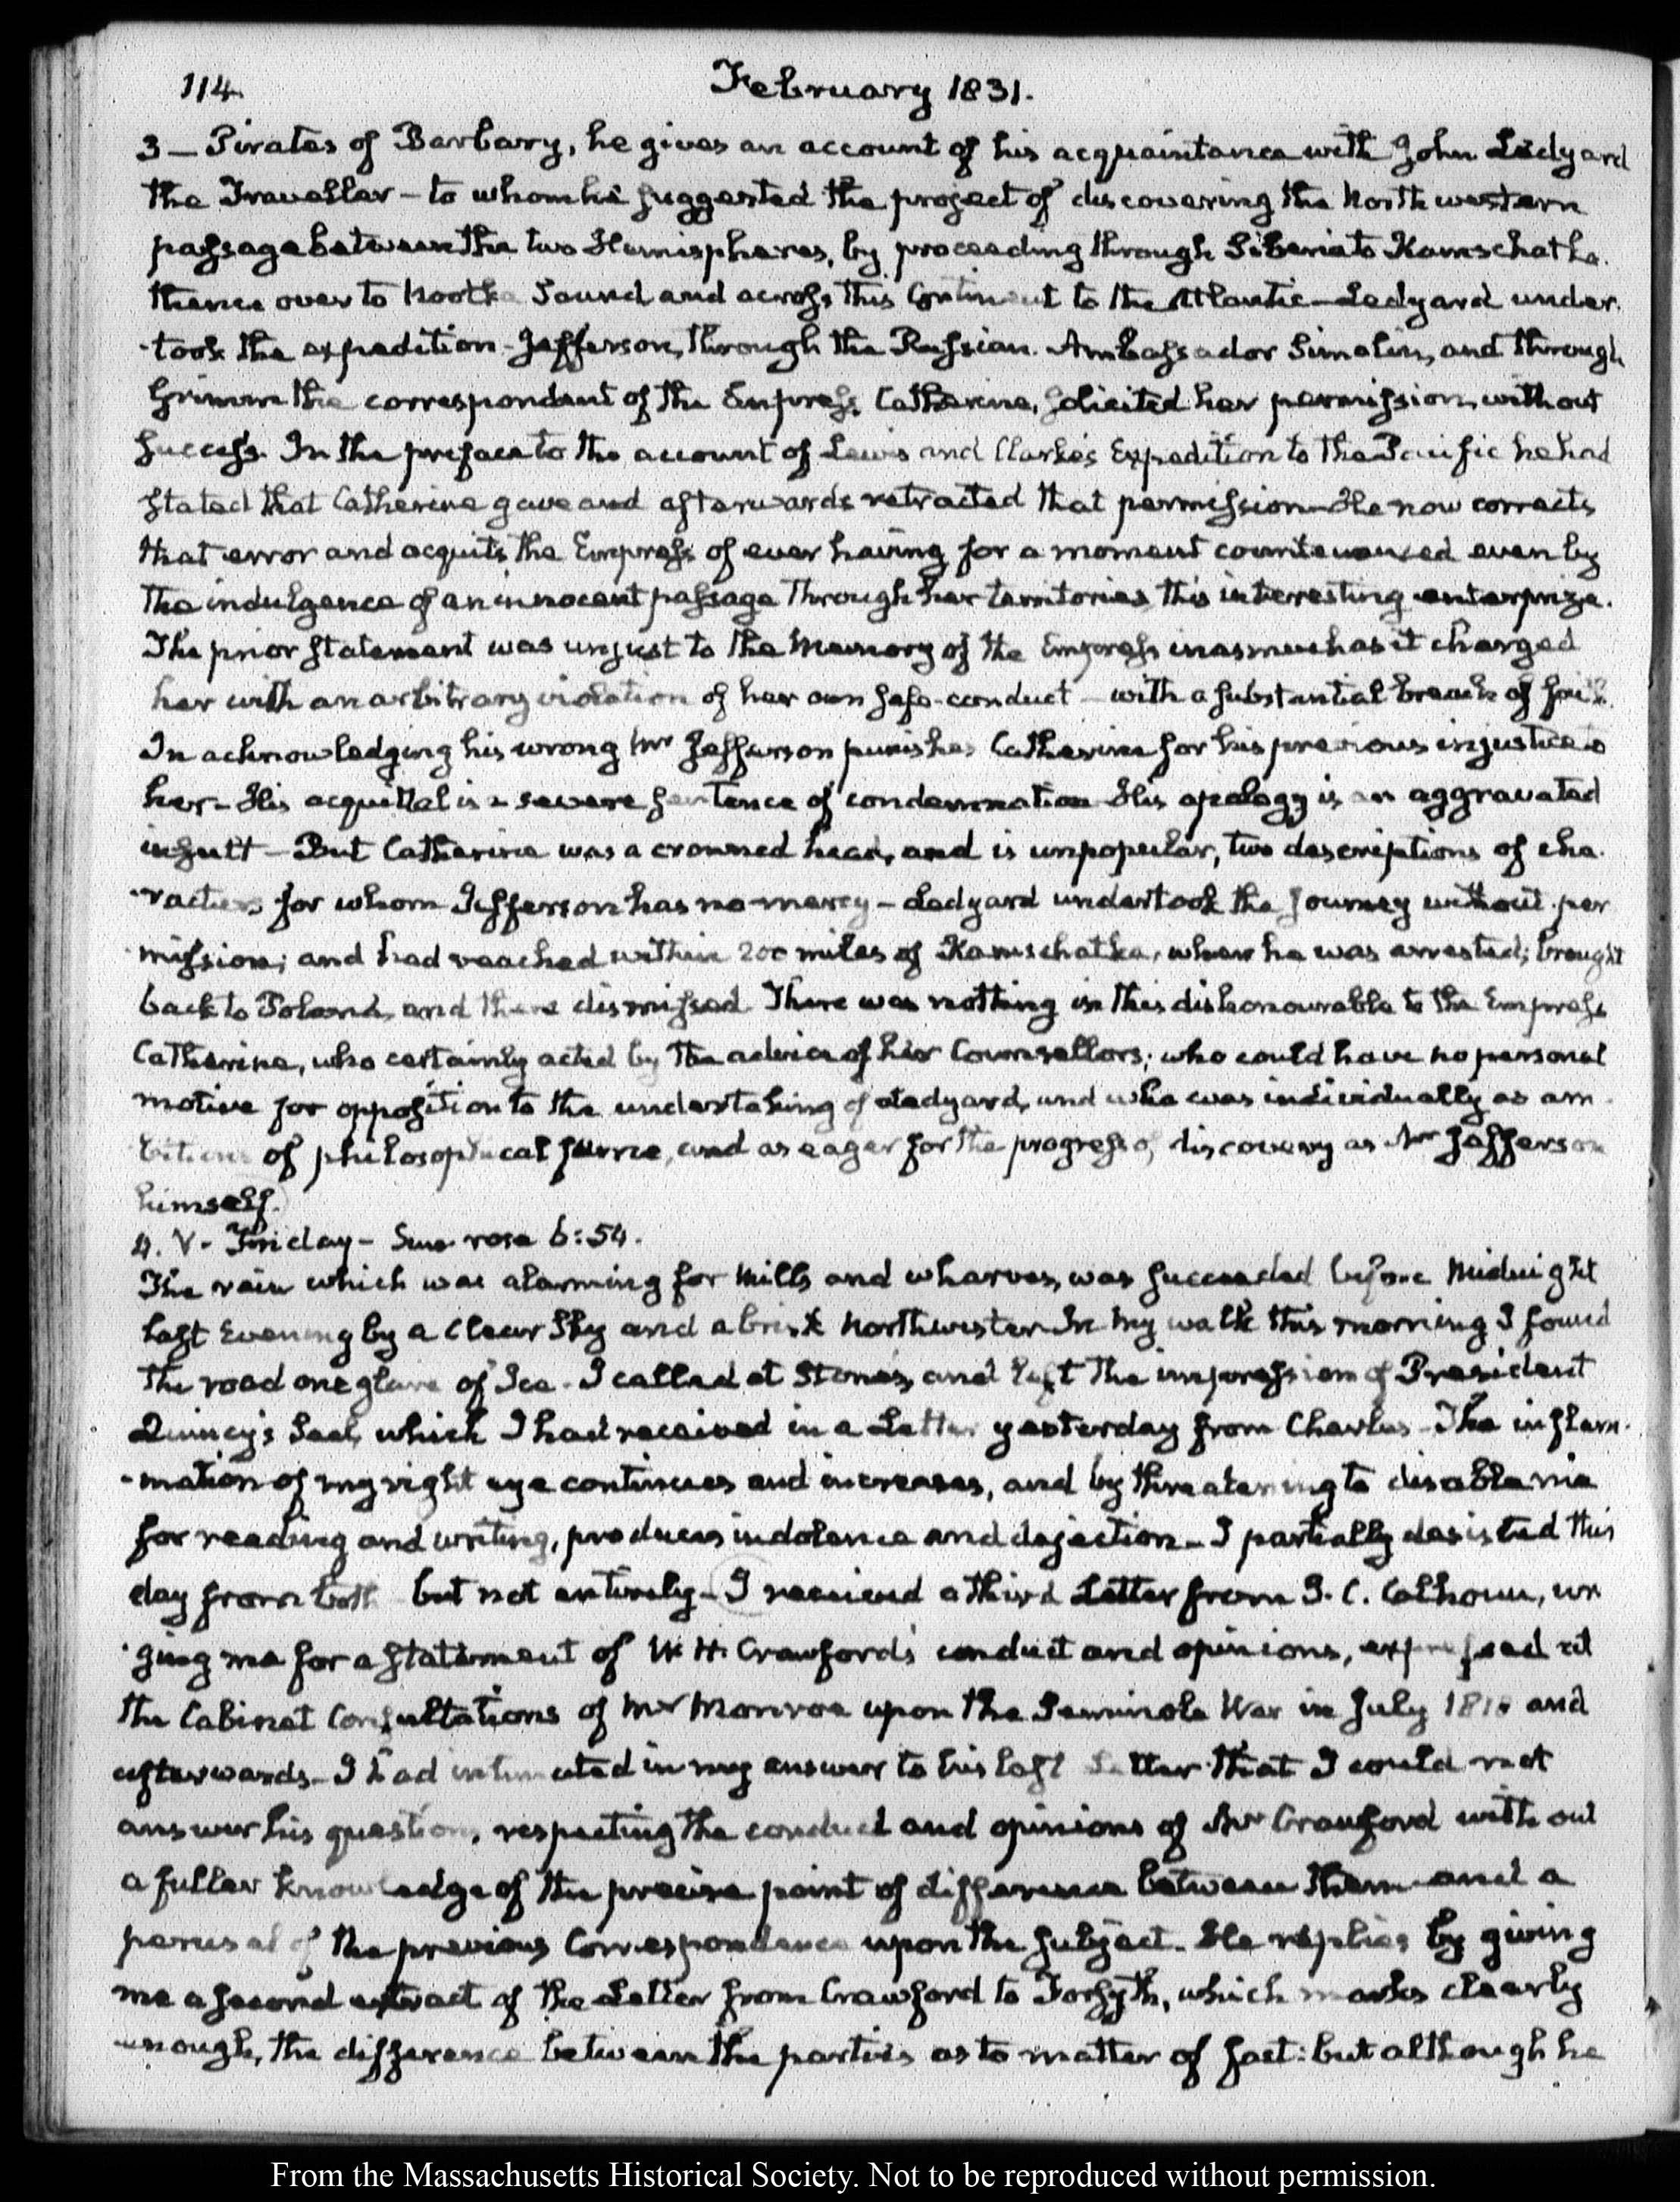 114.
February 1831.
3 — Pirates of Barbary, he gives an account of his acquaintance with John Ledyard
the Traveller — to whom he suggested the project of discovering the North western
passage between the two Hemispheres, by proceeding through Siberia to Kamschatka.
thence over to Nootka Sound and across this Continent to the Atlantic — Ledyard under-
-took the expedition — Jefferson, through the Russian Ambassador Simolin, and through
Grimm the correspondent of the Empress Catherine, solicited her permission, without
success. In the preface to the account of Lewis and Clarke's Expedition to the Pacific he had
stated that Catherine gave and afterwards retracted that permission — He now corrects
that error and acquits the Empress of ever having for a moment countenanced even by
the indulgence of an innocent passage through her territories this interesting enterprize.
The prior statement was unjust to the Memory of the Empress inasmuch as it charged
her with an arbitrary violation of her own safe-conduct — with a substantial breach of faith.
In acknowledging his wrong Mr Jefferson punishes Catherine for his previous injustice to
her — His acquittal is a severe sentence of condemnation — His apology is an aggravated
insult — But Catherine was a crowned head, and is unpopular, two descriptions of cha-
-racters for whom Jefferson has no mercy — Ledyard undertook the Journey without per
mission; and had reached within 200 miles of Kamschatka, when he was arrested; brought
back to Poland, and there dismissed. There was nothing in this dishonourable to the Empress
Catherine, who certainly acted by the advice of her Counsellors; who could have no personal
motive for opposition to the undertaking of Ledyard, and who was individually as am-
-bitious of philosophical fame, and as eager for the progress of discovery as Mr Jefferson
himself.
4. V. Friday — Sun rose 6:54.
The rain which was alarming for Mills and wharves, was succeeded before Midnight
last Evening by a clear Sky and a brisk Northwester. In my walk this morning I found
the road one glare of Ice — I called at Stone's, and left the impression of President
Quincy's Seal, which I had received in a Letter yesterday from Charles — The inflam-
-mation of my right eye continues and increases, and by threatening to disable me
for reading and writing, produces indolence and dejection — I partially desisted this
day from both but not entirely — I received a third Letter from J. C. Calhoun, ur
-ging me for a statement of W. H. Crawford's conduct and opinions, expressed at
the Cabinet Consultations of Mr Monroe upon the Seminole War in July 1818 and
afterwards — I had intimated in my answer to his last Letter that I could not
answer his questions, respecting the conduct and opinions of Mr Crawford without
a fuller knowledge of the precise point of difference between them and a
perusal of the previous Correspondence upon the subject. He replies by giving
me a second extract of the Letter from Crawford to Forsyth, which marks clearly
enough, the difference between the parties as to matter of fact: but although he
From the Massachusetts Historical Society. Not to be reproduced without permission.